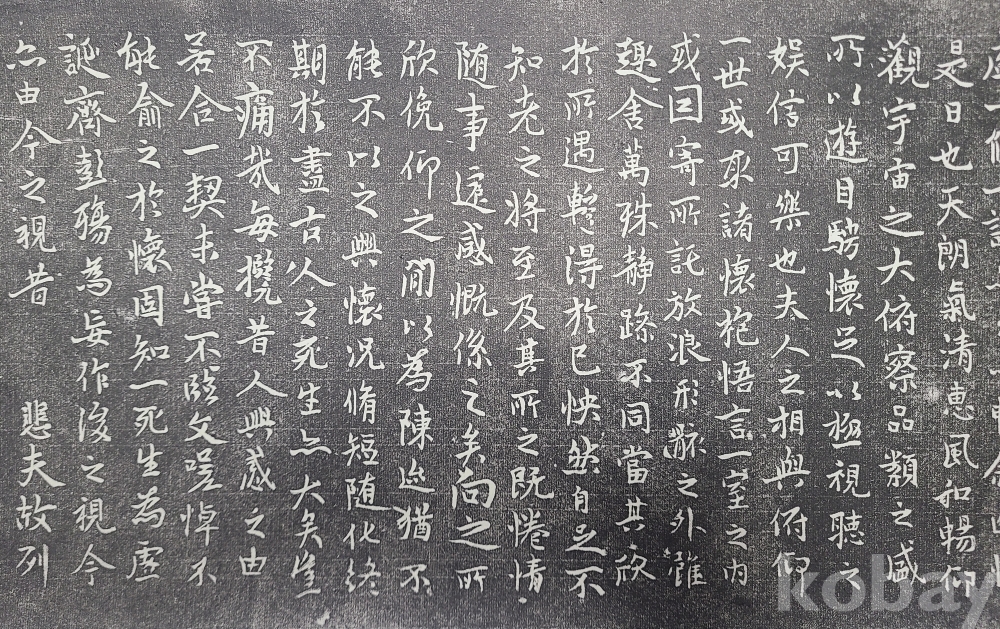 是日也天朗氣清惠風和暢仰
觀宇宙之大俯察品類之盛
所以遊目騁懷足以極視聽之
娛信可樂也夫人之相與俯仰
一世或取諸懷抱悟言一室之內
或因寄所託放浪形骸之外雖
趣舍萬殊靜躁不同當其欣
於所遇暫得於己怏然自足不
知老之將至及其所之既惓情
随事遷感慨係之矣向之所
欣俛仰之閒以為陳迹猶不
能不以之興懷況脩短随化終
期於盡古人之死生亦大矣豈
不痛哉每攬昔人興感之由
若合一契未嘗不臨文嗟悼不
能喻之於懷固知一死生為虛
誕齊彭殤為妄作後之視今
亦由今之視昔 悲夫故列
kobay